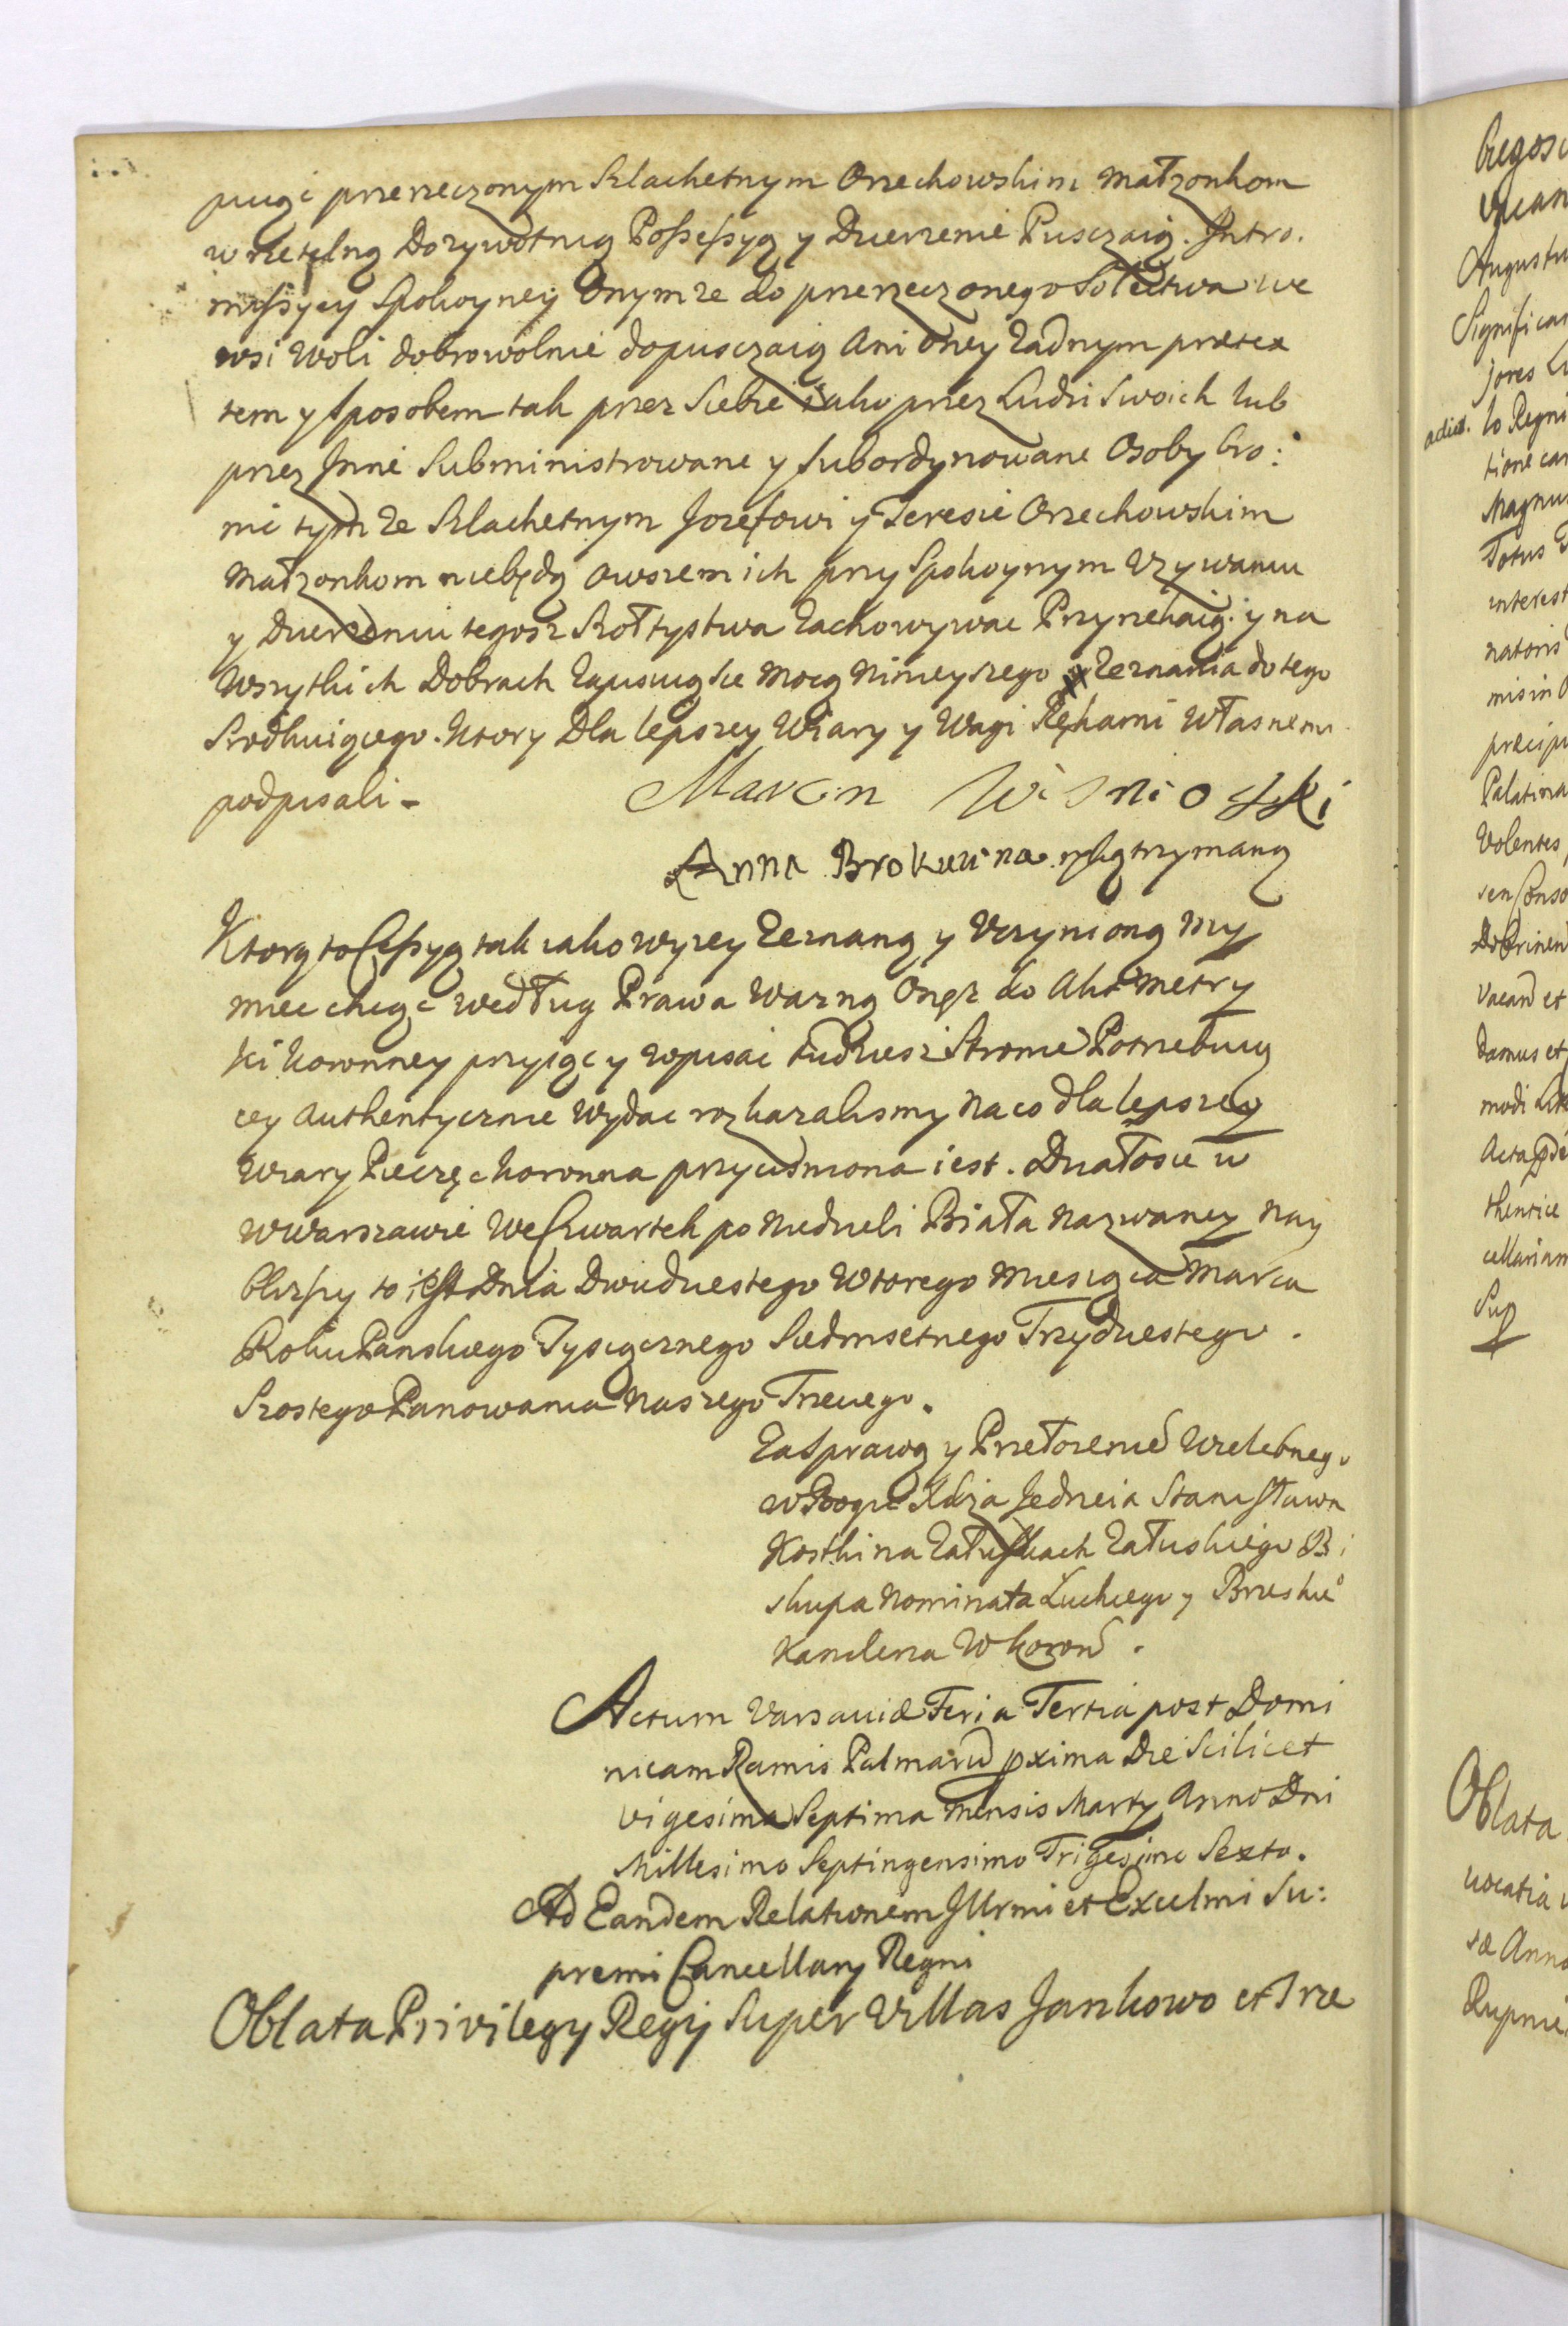 pugi przerzeczonym Szlachetnym Orzechowskim Małzonkom
w rzetelną Dozywotnią Possessyą y Dzierzenie Pusczaią. Intro.
missyey Spokoyney Onymze do przerzeczonego Sołectwa we
wsi Woli dobrowolnie dopusczaią Ani Oney Zadnym prætex
tem y sposobem tak przez Siebie iako przez Ludzi Swoich lub
przez Inne Subministrowane y subordynowane Osoby bro:
nic tymze Szlachetnym Jozefowi y Teresie Orzechowskim
Małzonkom niebędą owszem ich przy Spokoynym Uzywaniu
y Dzierzeniu tegosz Szołtystwa Zachowywac Przyrzekaią. y na
Wszytkich Dobrach Zapisuią sie Mocą Ninieyszego Zeznania do tego
Srodkuiącego. Ktory Dla lepszey Wiary y Wagi Rękami Własnemi
podpisali -
Marcin Wisnioski
Anna Brokwina ręką trzymaną
Ktorą to Cessyą tak iako wyzey Zeznaną y Uczynioną My
miec chcąc według Prawa Wazną Onęz do Akt Metry
ki Koronney przyiąc y wpisac tudziesz Stronie Potrzebuią
cey Authentycznie Wydac rozkazalismy Na co dla lepszey
Wiary Pieczęc koronna przycisniona iest. Działosie w
w Warszawie We Czwartek po Niedzieli Biała Nazwaney Nay
blizszy to iest Dnia Dwudziestego Wtorego Miesiąca Marca
Roku Panskiego Tysiącznego Siedmsetnego Trzydziestego.
Szostego Panowania Naszego Trzeciego.
Za Sprawą y Przełozeniem Wielebnego
w Bogu Xdza Jedrzeia Stanisława
Kostki na Załuskach Załuskiego Bi
skupa Nominata Łuckiego y Brzeskieo
Kanclerza W Koron.
Actum Varsaviæ Feria Tertia post Domi
nicam Ramis Palmarum pxima Die Scilicet
vigesima Septima Mensis Marty Anno Dni
Millesimo Septingensimo Trigesimo Sexto.
Ad Eandem Relationem Illrmi et Excelmi Su:
premi Cancellary Regni
Oblata Privilegy Regij Super Villas Jankowo et Trze
Augustu
Significa
jores
adist. to Regni
tione ca
Magnu
Totus
interest
natoris
mis in
præcipu
Palatina
Volentes
sen Conso
Dobrinen
Vacand et
Damus et
modi
Acta
thentice
cellariam
Sup
Oblata
vocatia
sæ Anno